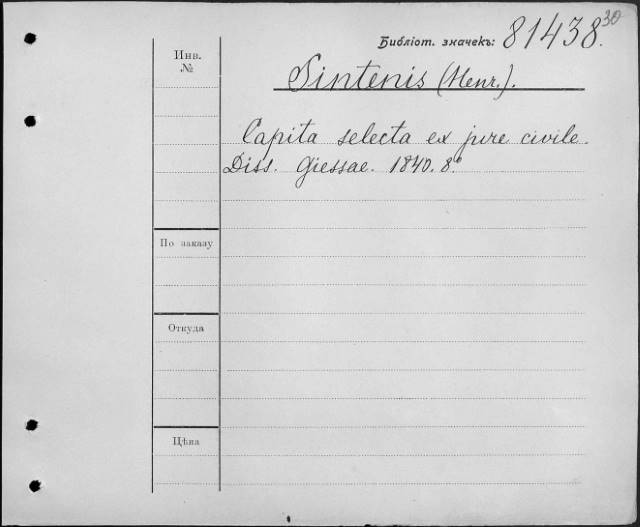 30
Библіот. значекъ: 81438.
Инв.
№
Sintenis (Henr.).
Capita selecta ex jure civile.
Diss. Giessae. 1840. 8°
По заказу
Откуда
Цѣна